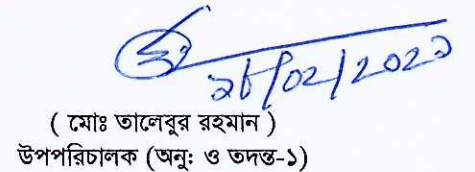 ২৮/০২/২০২২
( মোঃ তালেবুর রহমান )
উপপরিচালক (অনু: ও তদন্ত-১)